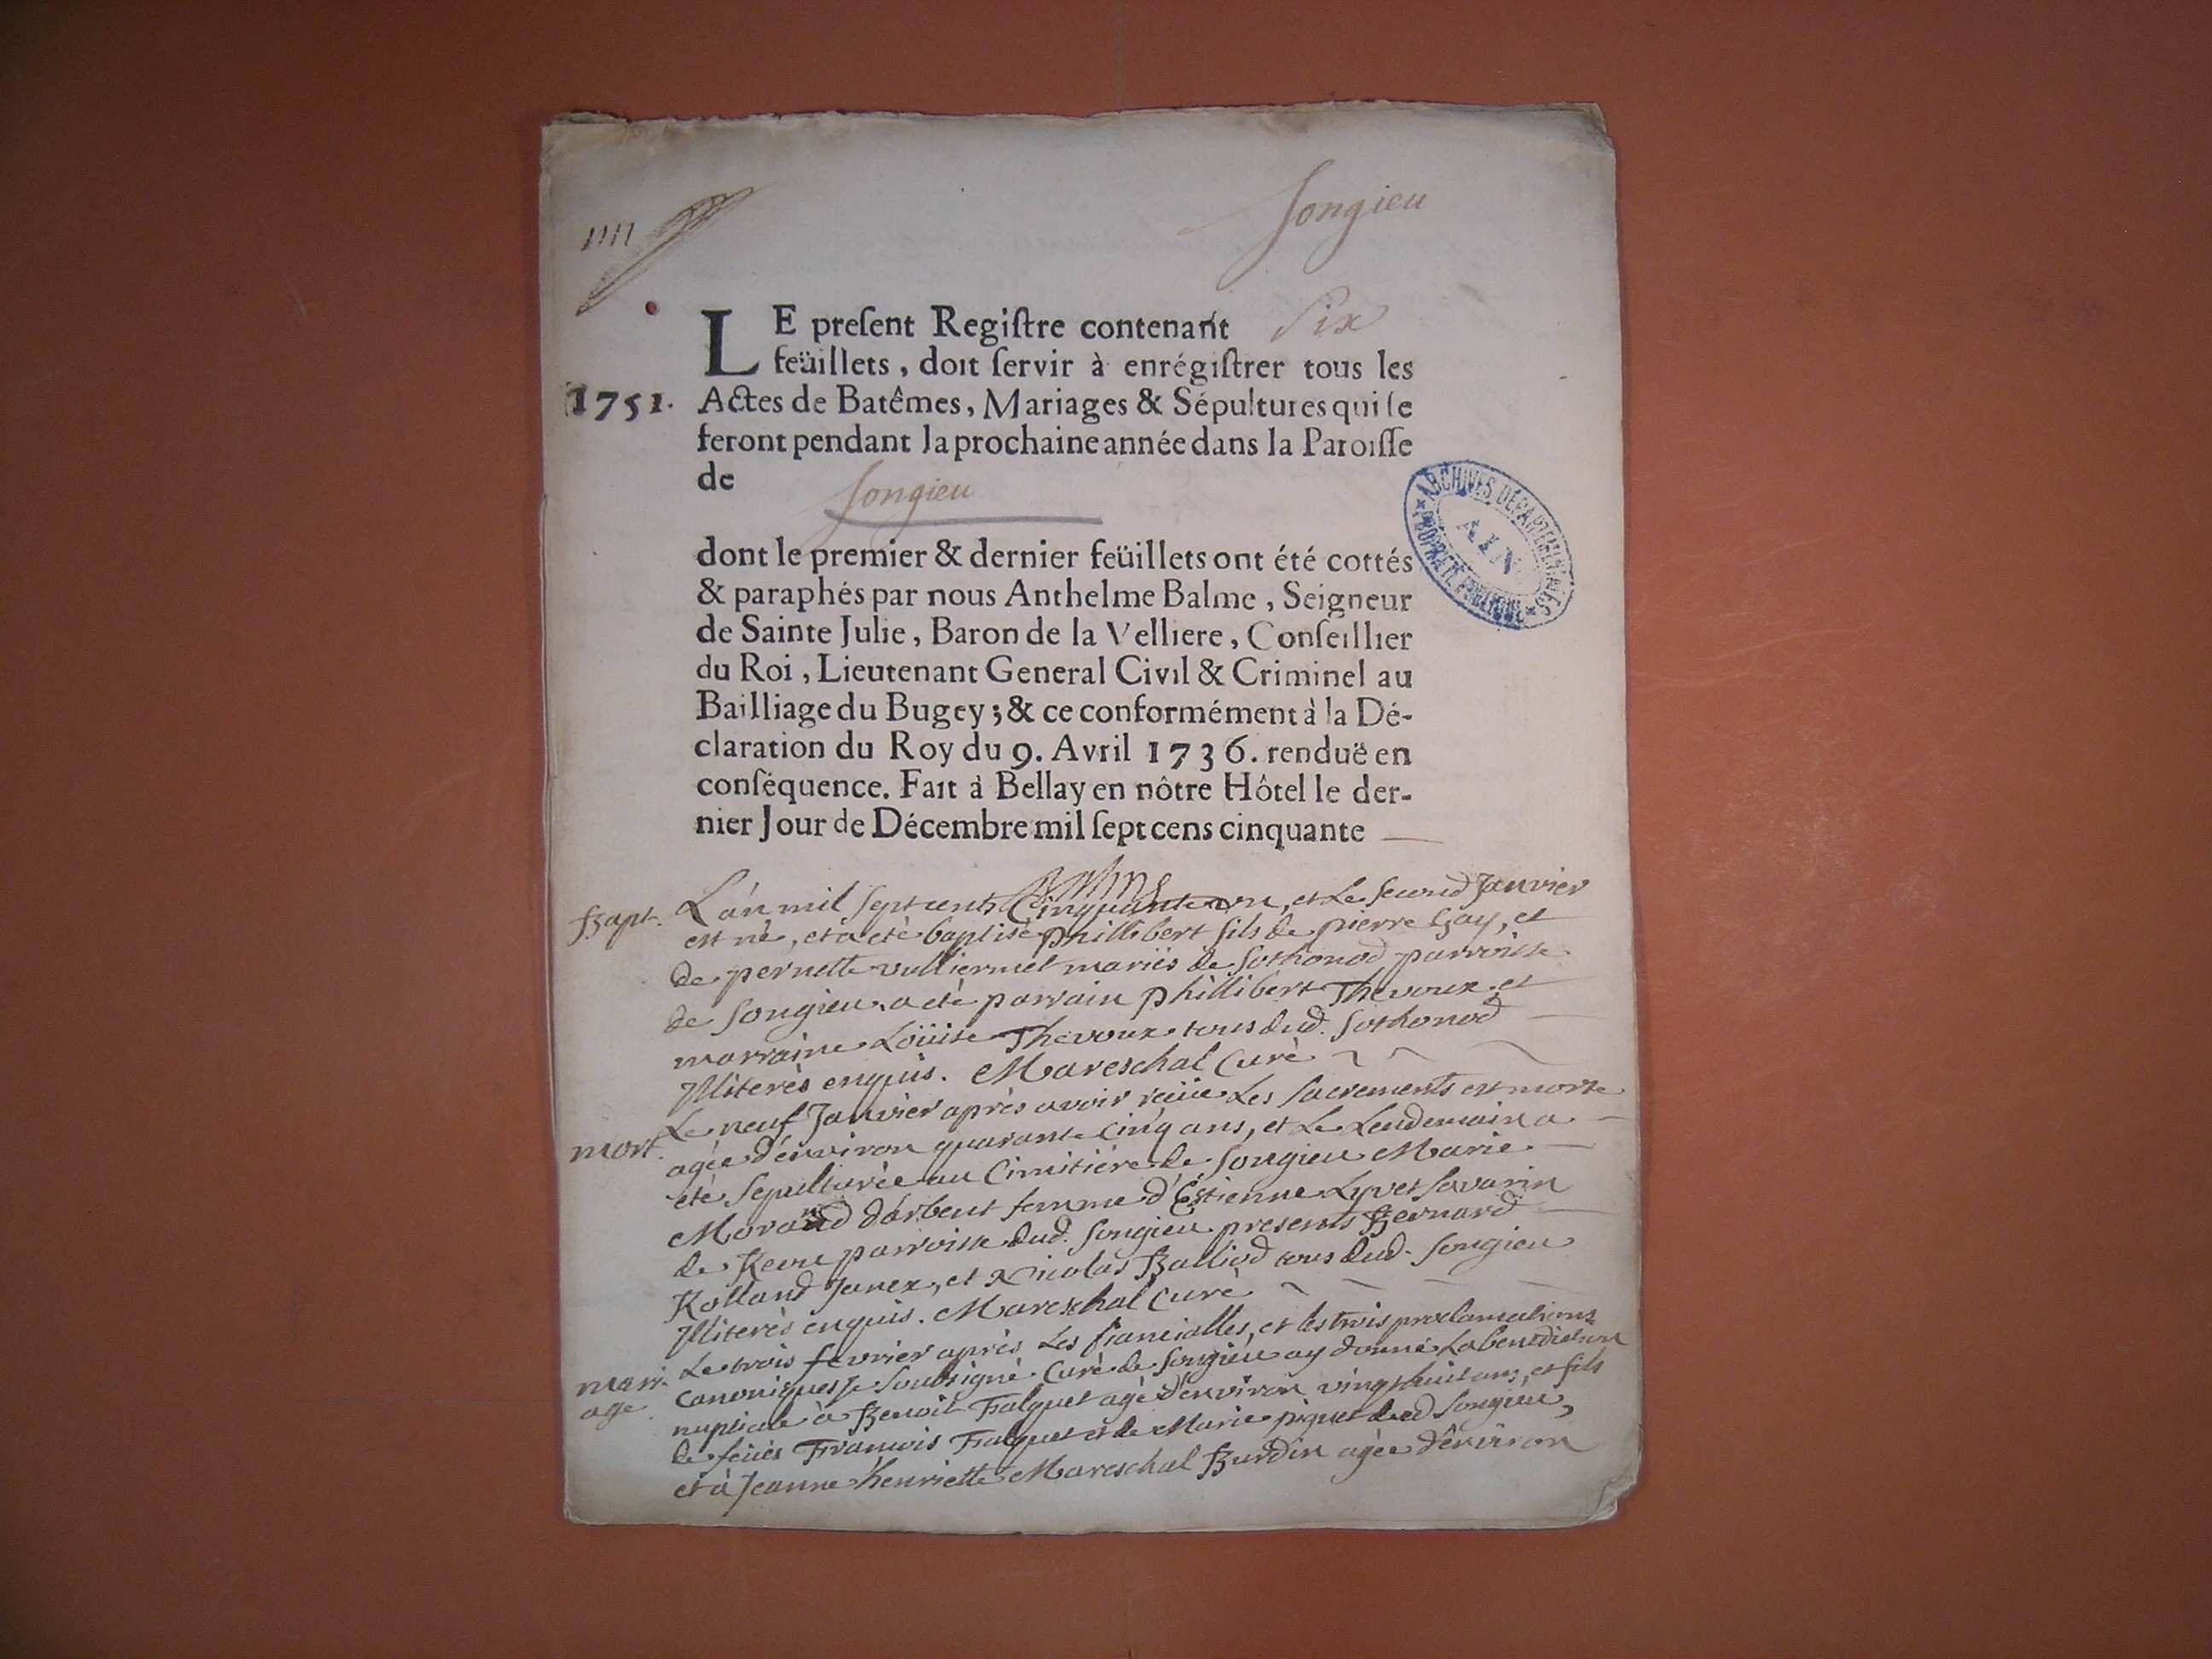 Songieu
LE preſent Regiſtre contenant Six
feüillets, doit ſervir à enrégiſtrer tous les
1751. Actes de Batêmes, Mariages & Sépultures qui ſe
feront pendant la prochaine année dans la Paroiſſe
de Songieu
ARCHIVES DÉPARTEMENTALES
AIN
PROPRIÉTÉ PUBLIQUE
dont le premier & dernier feüillets ont été cottés
& paraphés par nous Anthelme Balme, Seigneur
de Sainte Julie, Baron de la Velliere, Conſeillier
du Roi, Lieutenant General Civil & Criminel au
Bailliage du Bugey; & ce conformément à la Dé-
claration du Roy du 9. Avril 1736. renduë en
conſéquence. Fait à Bellay en nôtre Hôtel le der-
nier Jour de Décembre mil ſept cens cinquante
Bapt. L'an mil sept cents Cinquante un, et le second Janvier
est né, et a eté baptisé phillibert fils de pierre Gay, et
de pernette vulliermet mariés de Sothonod parroisse
de Songieu. a eté parrain phillibert Thevoux et
marraine Loüise Thevoux tous dud. Sothonod
Illiterès enquis. Mareschal Curè
mort. Le neuf Janvier après avoir reçüe Les Sacrements est morte
agèe d'environ quarante Cinq ans, et Le Lendemain a
etè Sepulturèe au Cimitière de Songieu Marie
Morand d'arbent femme d'Estienne Lyvet Savarin
de parroisse dud. Songieu. presents Bernard
Rolland Janex, et Nicolas Balliod tous dud. Songieu
Illiterès enquis. Mareschal Curè
mari- Le trois fevrier après Les fiancialles, et les trois proclamations
age. Canoniques Je Soubsigné Curè de Songieu ay donné La benediction
nuptiale à Benoit Falquet agè d'environ vingt huit ans, et fils
de feües François Falquet et de Marie piquet dud Songieu,
et à Jeanne henriette Mareschal Burdin agèe d'environ